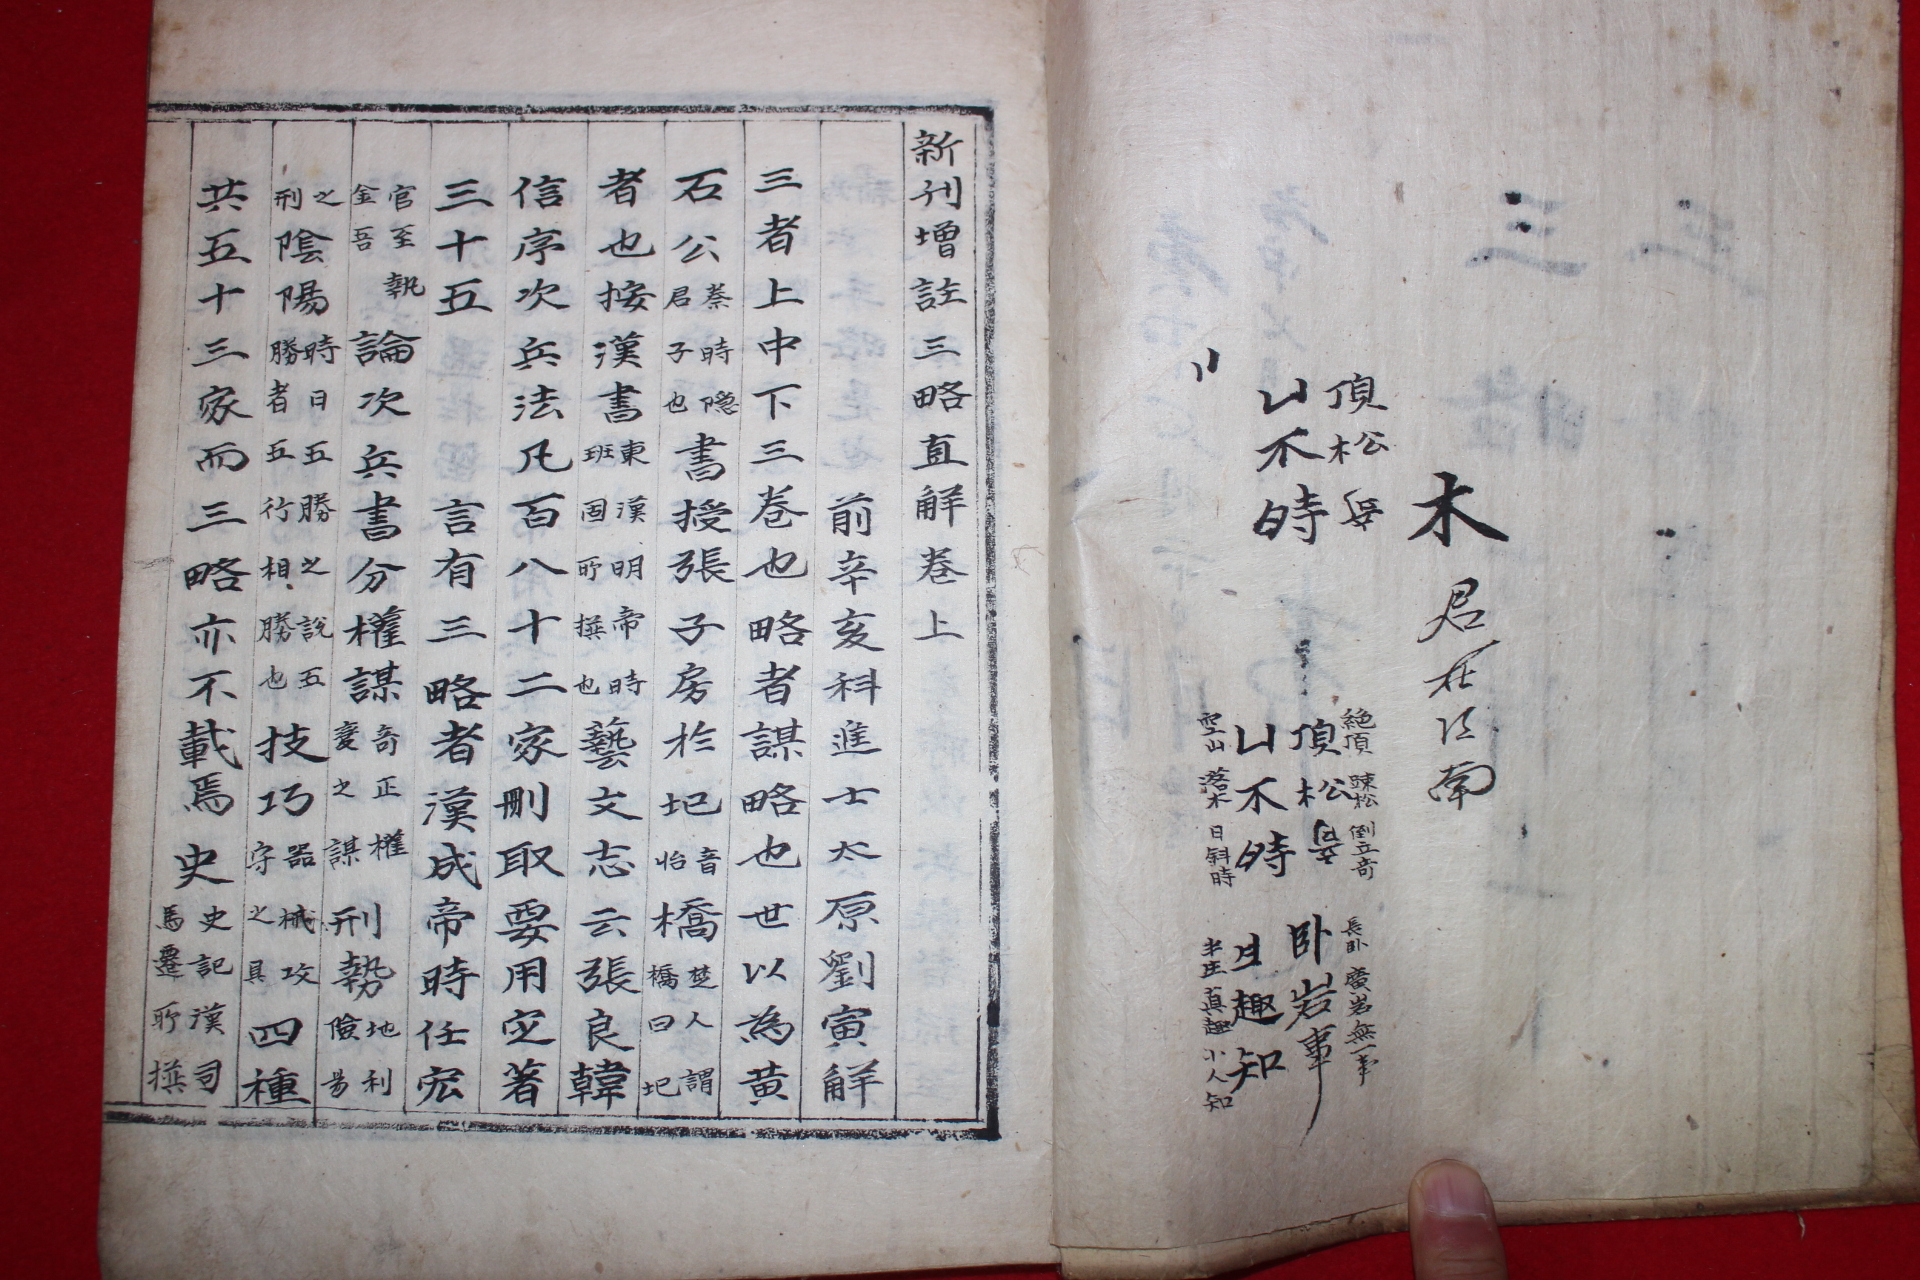 木君在江南
頂松
山不時
絶頂 踈松 倒立奇 長卧 廣岩 無一事
頂松 卧岩事
山不時 趣知
空山 落木 日斜時 半生 眞趣 小人知
新刊增註三略直解卷上
前辛亥科進士太原劉寅解
三者上中下三卷也略者謀略也世以為黃
石公蔡時隱君子也書授張子房於圯音怡橋楚人謂橋曰圯
者也按漢書東漢明帝時班固所撰也藝文志云張良韓
信序次兵法凡百八十二家刪取要用定著
三十五言有三略者漢成帝時任宏
官至執金吾論次兵書分權謀奇正權變之謀刑勢地利險易
之刑陰陽時日五勝之說五勝者五行相勝也技巧器械攻守之具四種
共五十三家而三略亦不載焉史史記漢司馬遷所撰